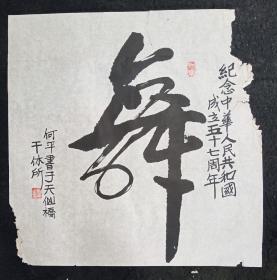 紀念中華人民共和國
成立五十七周年
舞
何平書于天仙橋
干休所